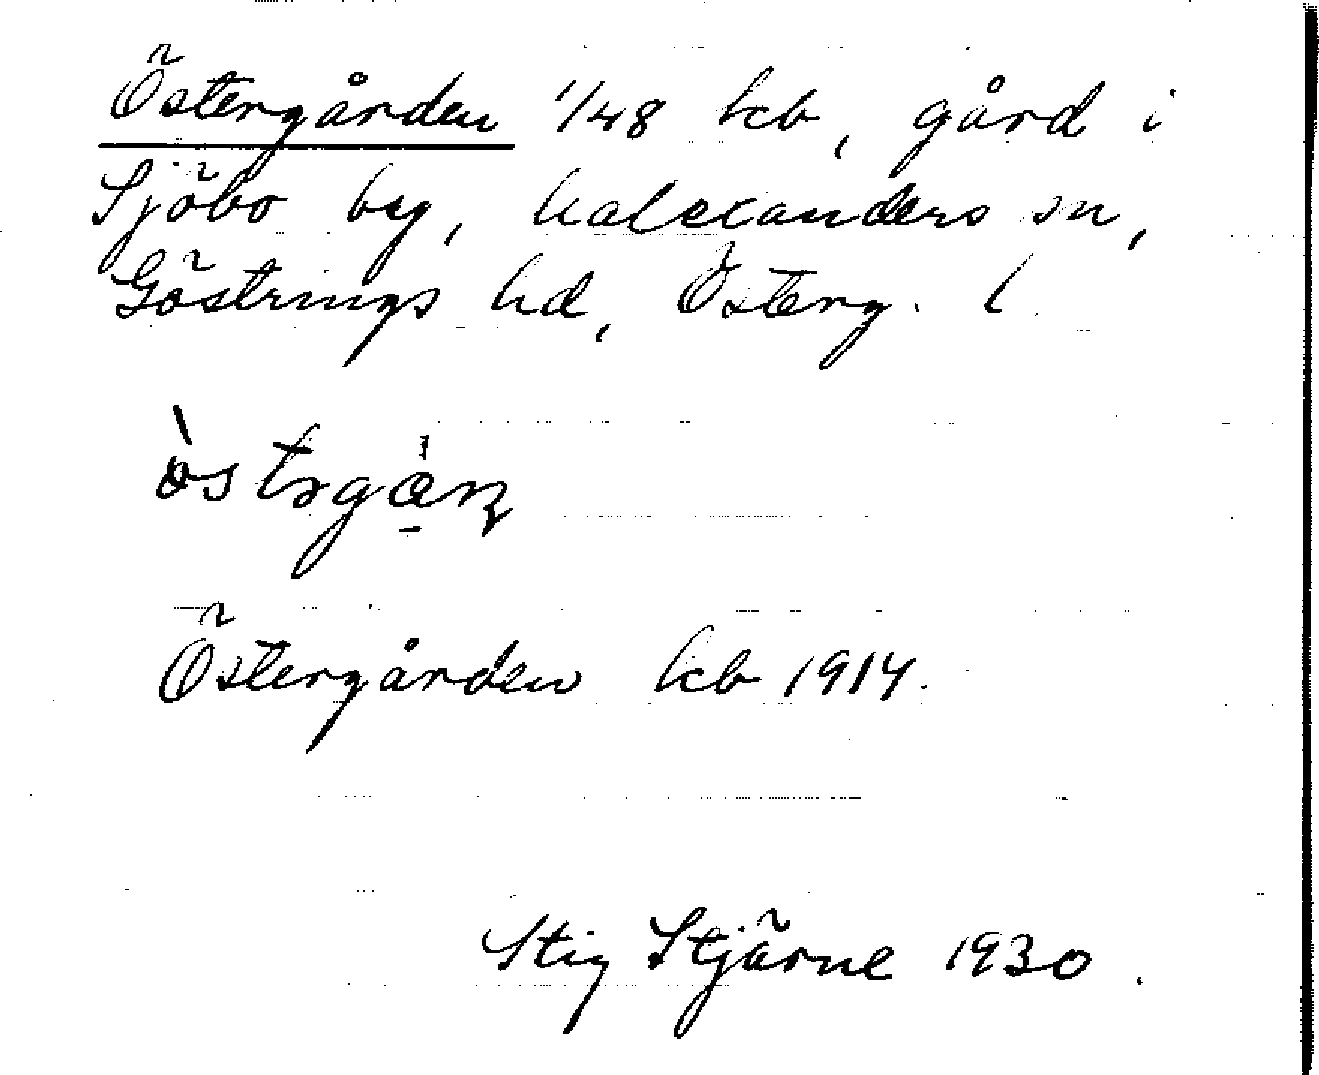 Östergården 1/48 kb, gård i
Sjöbo by, Malexanders sn,
Göstrings hd, Österg. l
Östergården kb 1914.
Stig Stjärne 1930.